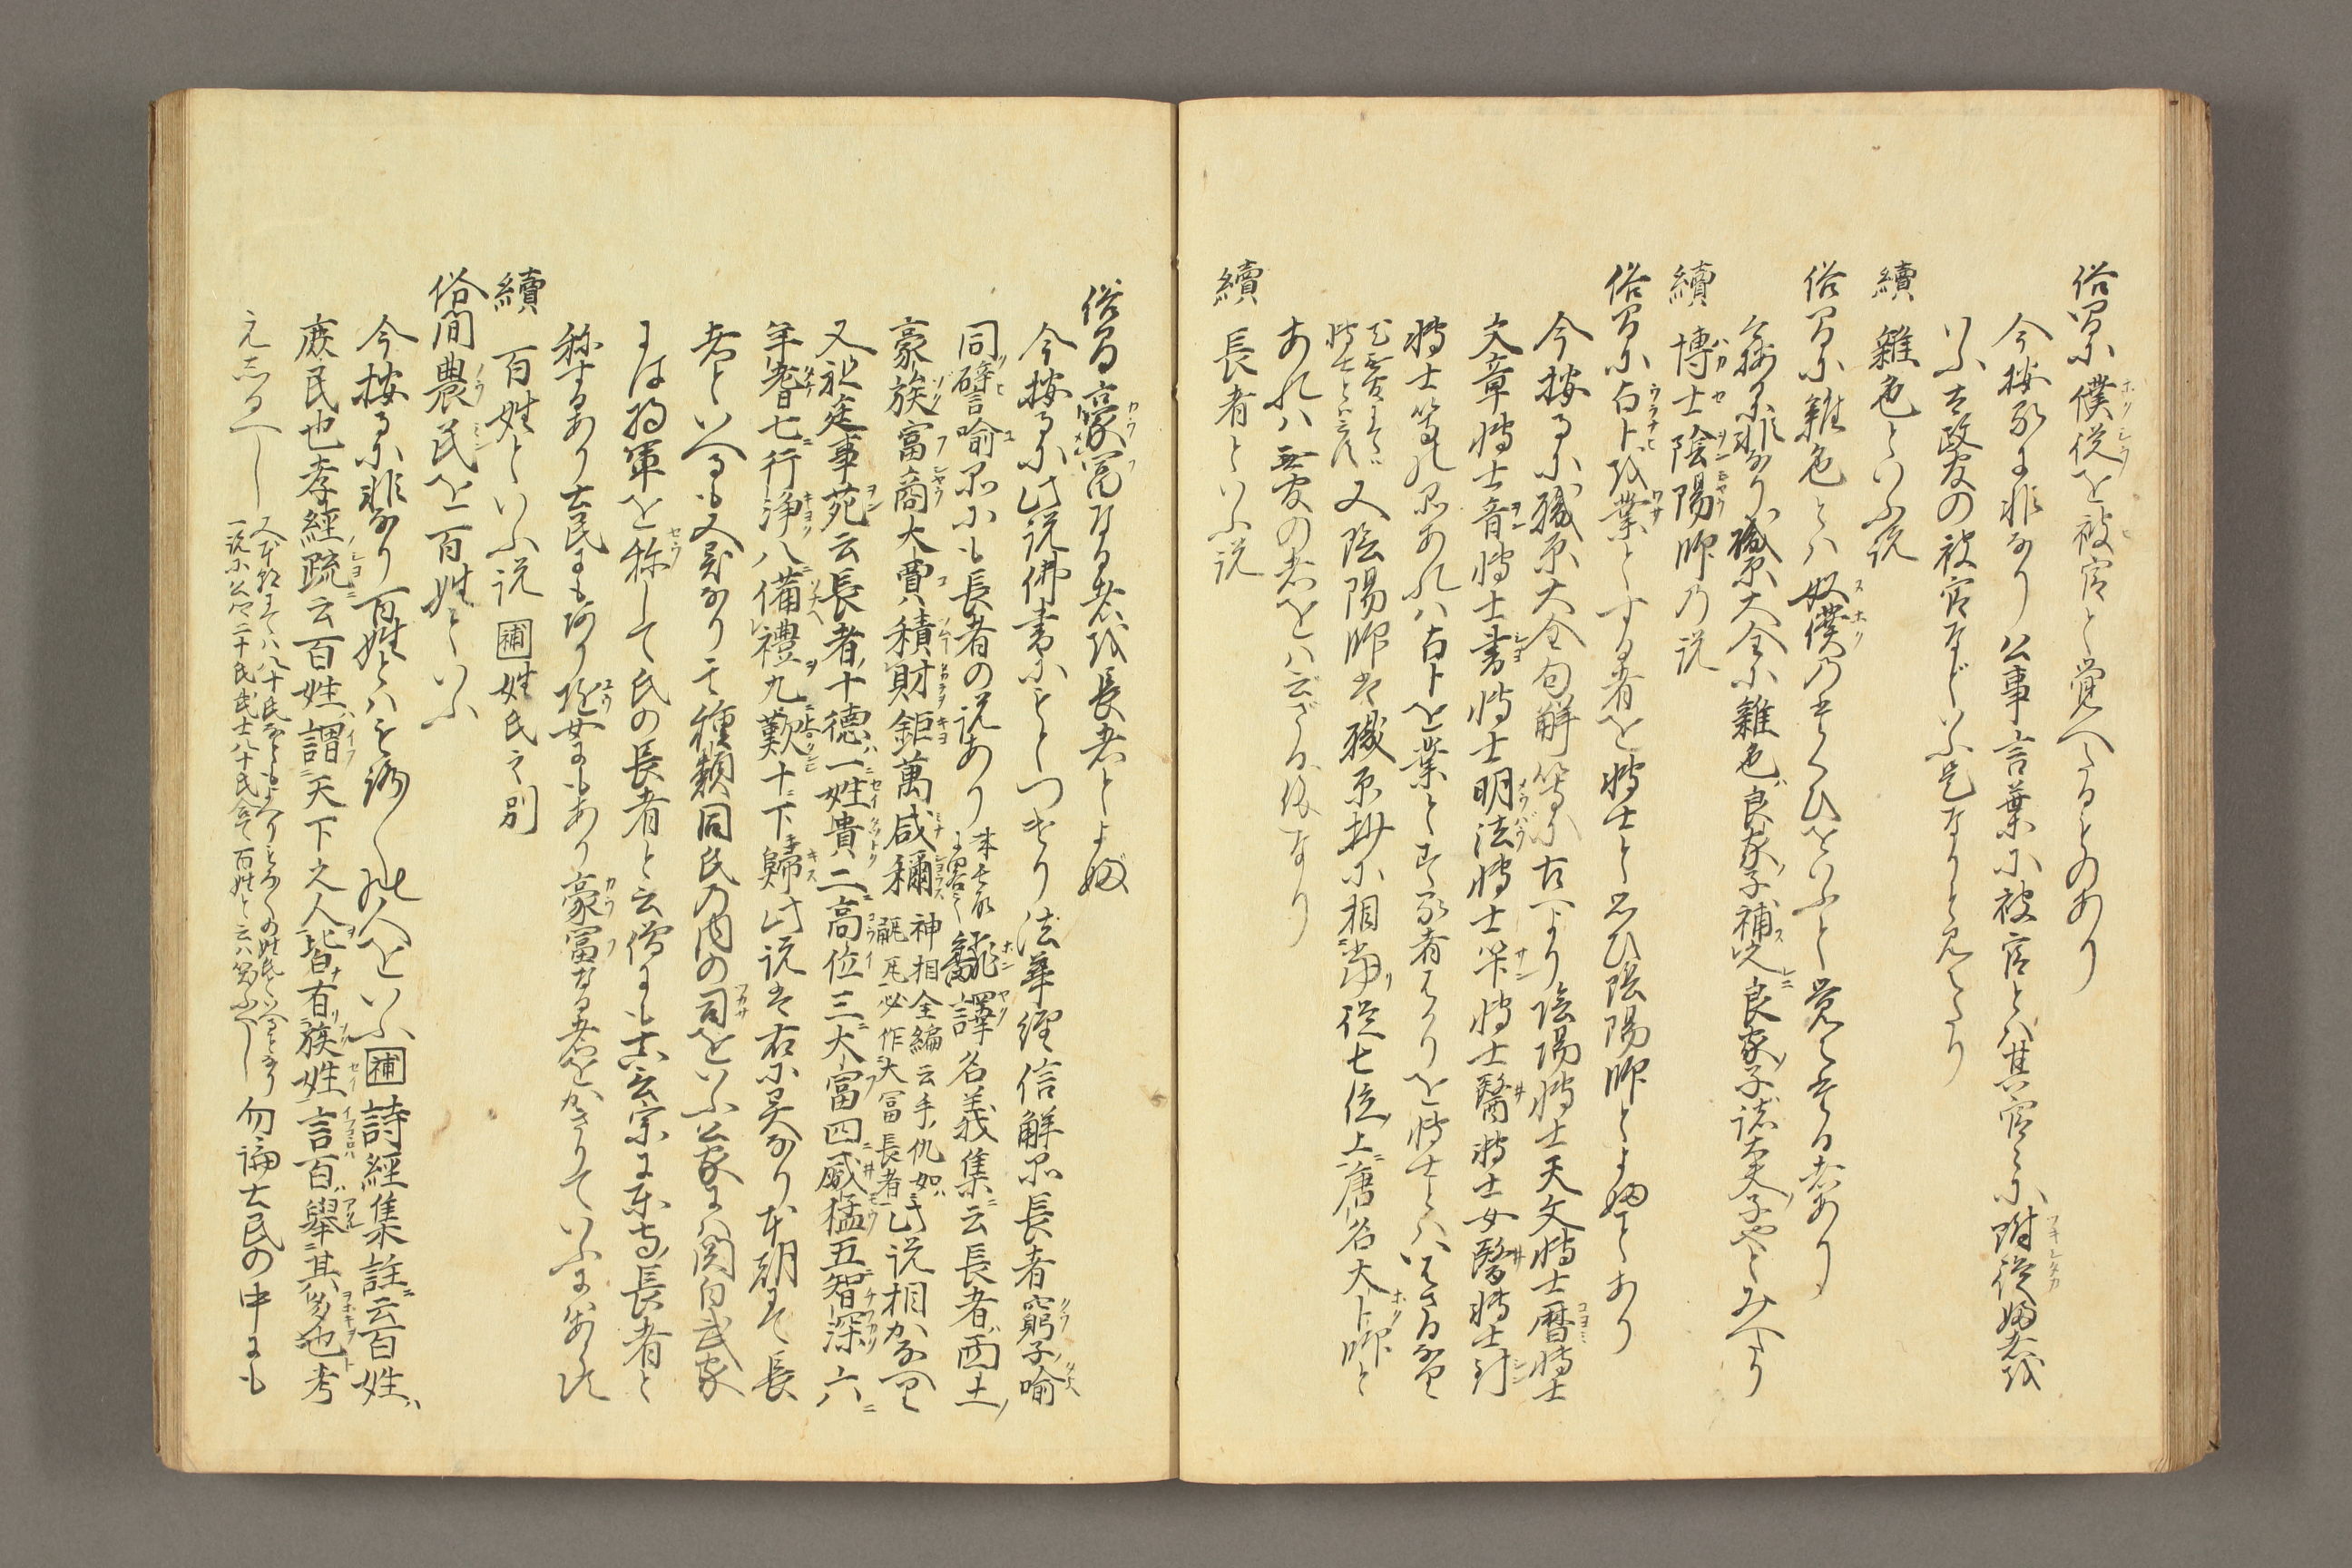 俗間に僕従を被官と覚へたるものあり
今按るに非なり公事言葉に被官とハ其官々に附従ふ者を
いふ太政官の被官などいふ是なりと見へたり
續 雜色といふ説
俗間に雜色とハ奴僕のたくひをいふと覚へたる者あり
今按るに非なり職原大全に雜色良家子補之良家子諸大夫子也とみへたり
續 博士陰陽師乃説
俗間に占卜を業とする者を博士と思ひ陰陽師とよぶとあり
今按るに職原大全句解等に古より陰陽博士天文博士暦博士
文章博士音博士書博士明法博士筭博士醫博士女醫博士針
博士等の品あれハ占卜を業とする者はかりを博士とハいはさるなり
又陰陽師は職原抄に相當従七位上唐名大卜師と
あれハ無官の者をハ云ざる儀なり
續 長者といふ説
俗間豪冨なる者を長者とよぶ
今按るに此説佛書にもとつけり法華経信解品長者窮子喩
同譬喩品にも長者の説あり 飜譯名義集云長者西土
豪族富商大賈積財鉅萬咸稱 神相全編云手仇如 此説相かなへり
又祖庭事苑云長者十徳一姓貴二高位三大富四威猛五智深六
年耆七行浄八備禮九歎十下歸此説は右に異なり本朝にて長
者といへるも又別なり其種類同氏の内の司をいふ公家にハ関白武家
には将軍を称して氏の長者と云僧にも真言宗に東寺長者と
称するあり士民にも有り遊女にもあり豪冨なる者をかきりていふにあらす
續 百姓といふ説 補 姓氏之別
俗間農民を百姓といふ
今按るに非なり百姓とハもろ〳〵の人をいふ 補 詩經集註云百姓
庶民也孝經疏云百姓謂天下之人皆有族姓言百舉其多也考
え志るへし 勿論士民の中にも